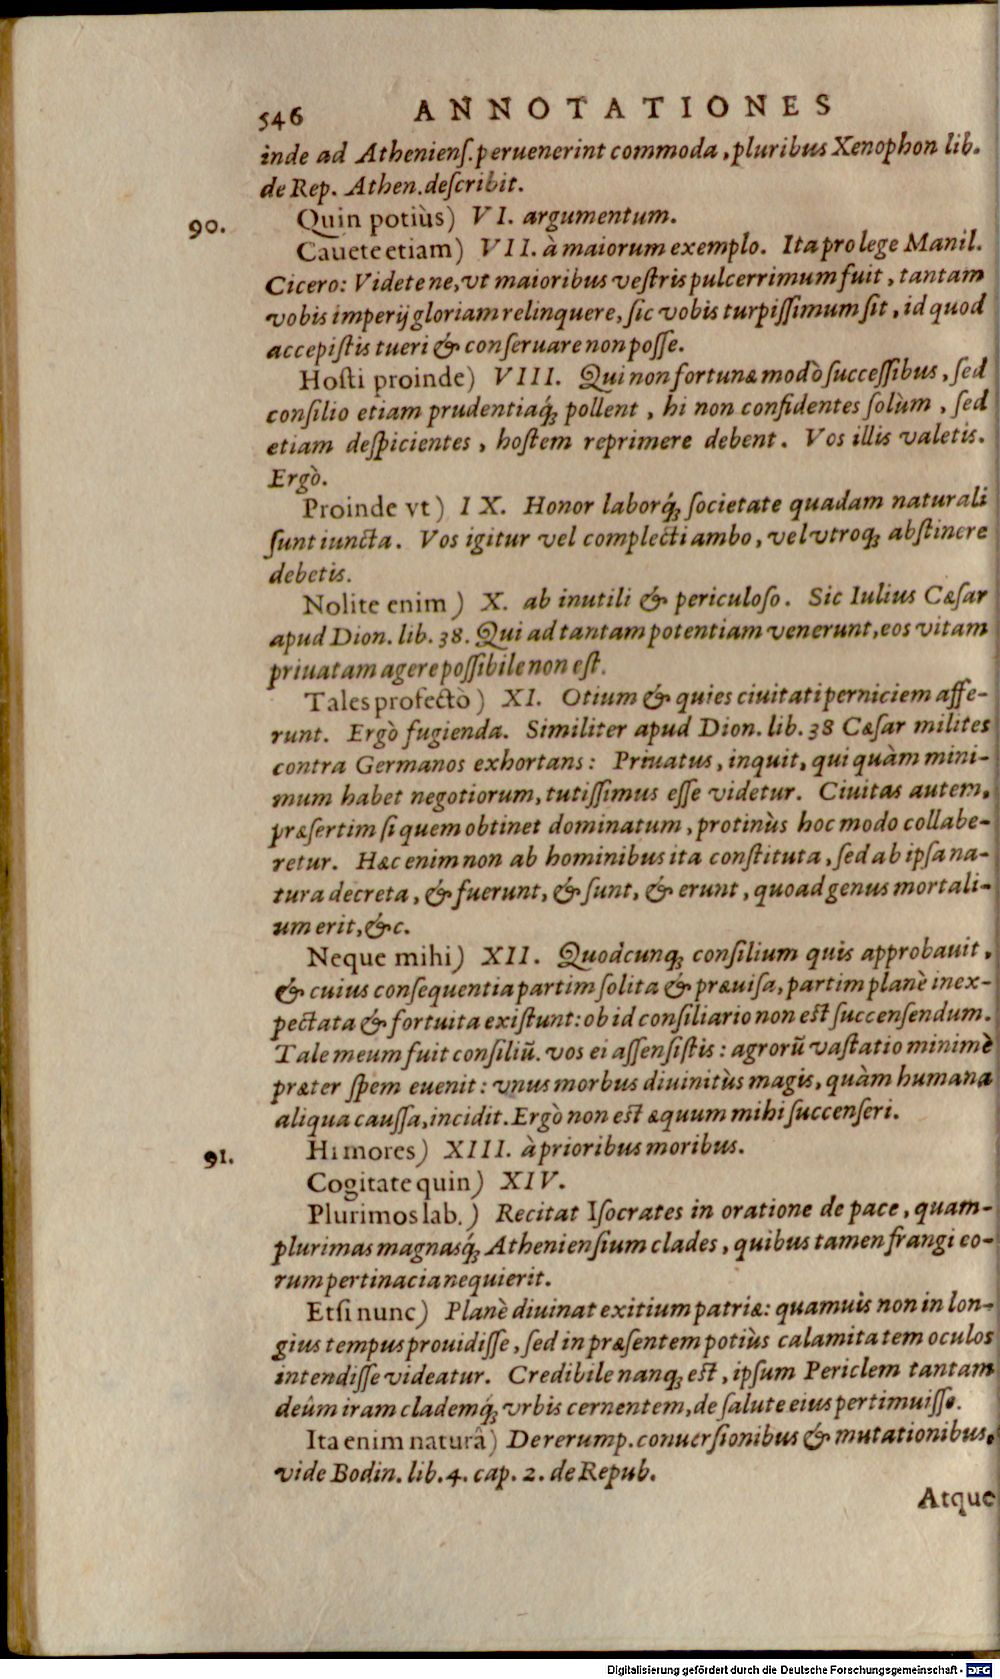 546 ANNOTATIONES
inde ad Athenienſ. peruenerint commoda, pluribus Xenophon lib.
de Rep. Athen. deſcribit.
90. Quin potiùs) VI. argumentum.
Cauete etiam) VII. à maiorum exemplo. Ita pro lege Manil.
Cicero: Videte ne, vt maioribus veſtris pulcerrimum fuit, tantam
vobis imperij gloriam relinquere, ſic vobis turpiſſimum ſit, id quod
accepiſtis tueri & conſeruare non poſſe.
Hoſti proinde) VIII. Qui non fortunæ modò ſucceſſibus, ſed
conſilio etiam prudentiaq́; pollent, hi non confidentes ſolùm, ſed
etiam deſpicientes, hoſtem reprimere debent. Vos illis valetis.
Ergò.
Proinde vt) IX. Honor laborq́; ſocietate quadam naturali
ſunt iuncta. Vos igitur vel complecti ambo, vel vtroq; abſtinere
debetis.
Nolite enim) X. ab inutili & periculoſo. Sic Iulius Cæſar
apud Dion. lib. 38. Qui ad tantam potentiam venerunt, eos vitam
priuatam agere poſſibile non eſt.
Tales profectò) XI. Otium & quies ciuitati perniciem affe-
runt. Ergò fugienda. Similiter apud Dion. lib. 38 Cæſar milites
contra Germanos exhortans: Priuatus, inquit, qui quàm mini-
mum habet negotiorum, tutiſſimus eſſe videtur. Ciuitas autem,
præſertim ſi quem obtinet dominatum, protinùs hoc modo collabe-
retur. Hæc enim non ab hominibus ita conſtituta, ſed ab ipſa na-
tura decreta, & fuerunt, & ſunt, & erunt, quoad genus mortali-
um erit, &c.
Neque mihi) XII. Quodcunq; conſilium quis approbauit,
& cuius conſequentia partim ſolita & præuiſa, partim planè inex-
pectata & fortuita exiſtunt: ob id conſiliario non eſt ſuccenſendum.
Tale meum fuit conſiliũ. vos ei aſſenſiſtis: agrorũ vaſtatio minimè
præter ſpem euenit: vnus morbus diuinitùs magis, quàm humana
aliqua cauſſa, incidit. Ergò non eſt æquum mihi ſuccenſeri.
91. Hi mores) XIII. à prioribus moribus.
Cogitate quin) XIV.
Plurimos lab.) Recitat Iſocrates in oratione de pace, quam-
plurimas magnasq́; Athenienſium clades, quibus tamen frangi eo-
rum pertinacia nequierit.
Etſi nunc) Planè diuinat exitium patriæ: quamuis non in lon-
gius tempus prouidiſſe, ſed in præſentem potiùs calamitatem oculos
intendiſſe videatur. Credibile nanq; eſt, ipſum Periclem tantam
deûm iram clademq́; vrbis cernentem, de ſalute eius pertimuiſſe.
Ita enim naturâ) De rerum p. conuerſionibus & mutationibus,
vide Bodin. lib. 4. cap. 2. de Repub.
Atque
Digitalisierung gefördert durch die Deutsche Forschungsgemeinschaft - DFG